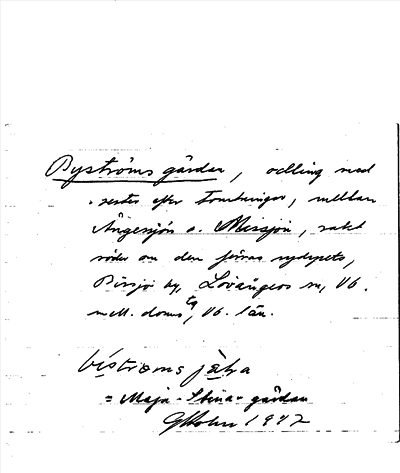 Byströms gårdar, odling med
rester efter tomtningar, mellan
Ångersjön o. Missjön, rakt
söder om den förras sydspets,
Bissjö by, Lövångers sn, Vb.
mell. doms tg, Vb. län.
= Maja-Stina-gårdan
GHolm 1942